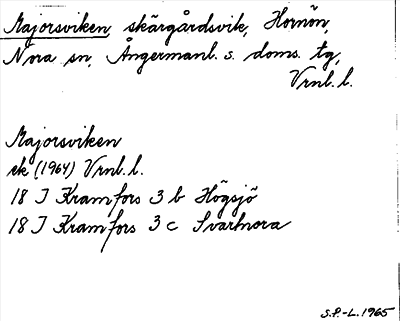 Majorsviken, skärgårdsvik, Hornön,
Nora sn, Ångermanl. s. doms. tg,
Vrnl. l.
Majorsviken
ek (1964) Vrnl. l.
18 I Kramfors 3 b Högsjö
18 I Kramfors 3 c Svartnora
S.P.-L. 1965